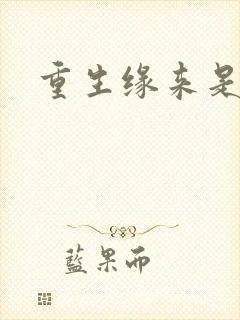 重生缘来是
藍果而